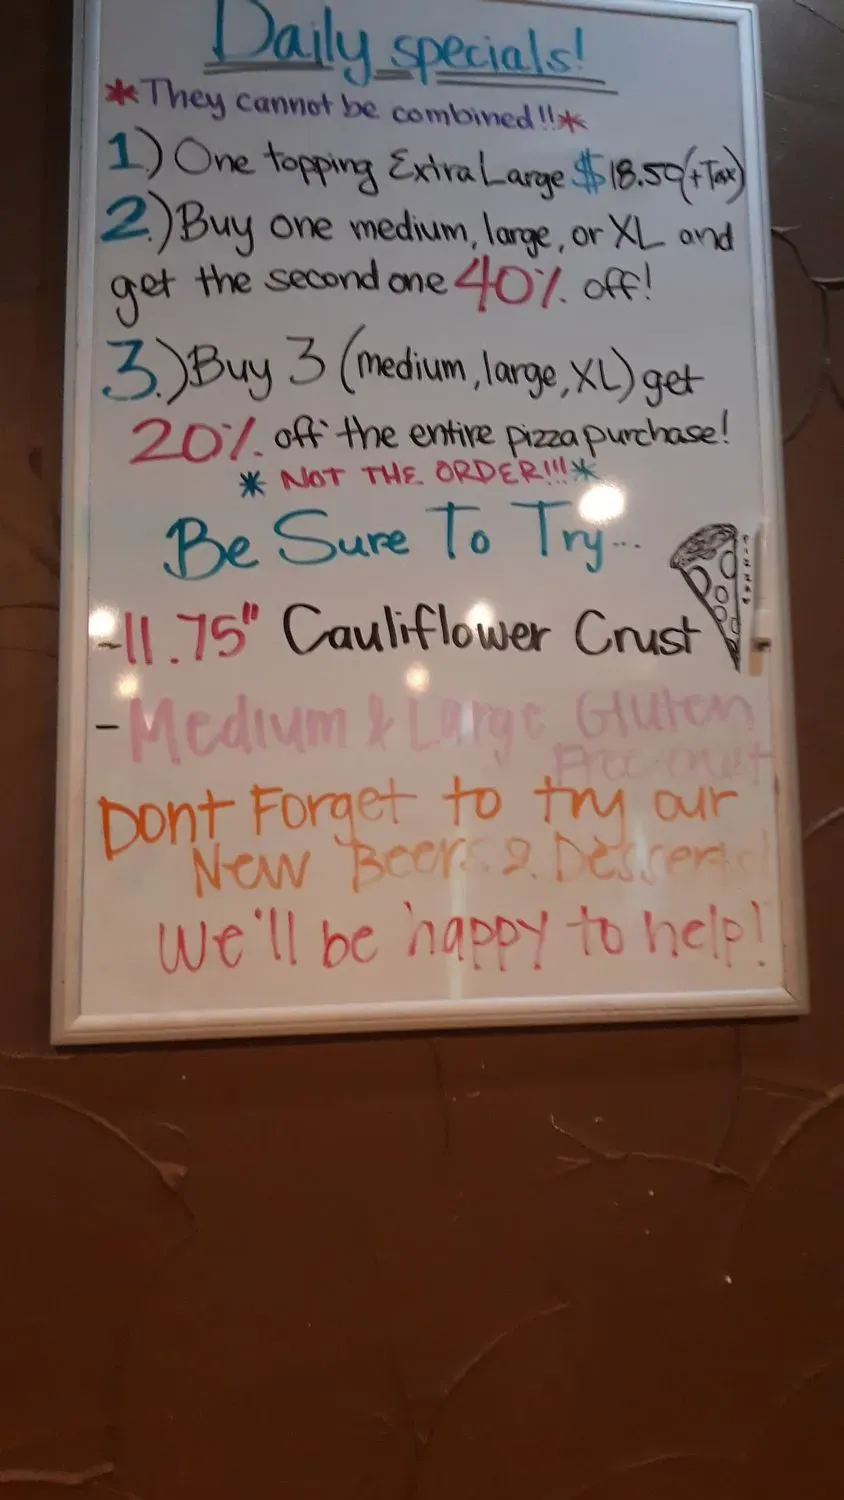 Daily specials!
*They cannot be combined!!*
1.) One topping Extra Large $18.50 (+Tax)
2.) Buy one medium, large, or XL and
get the second one 40% off!
3.) Buy 3 (medium, large, XL) get
20% off the entire pizza purchase!
* NOT THE ORDER!!!*
Be Sure To Try...
-11.75" Cauliflower Crust
- Medium & Large Gluten
Free crust
Dont Forget to try our
New Beers & Desserts!
We'll be happy to help!